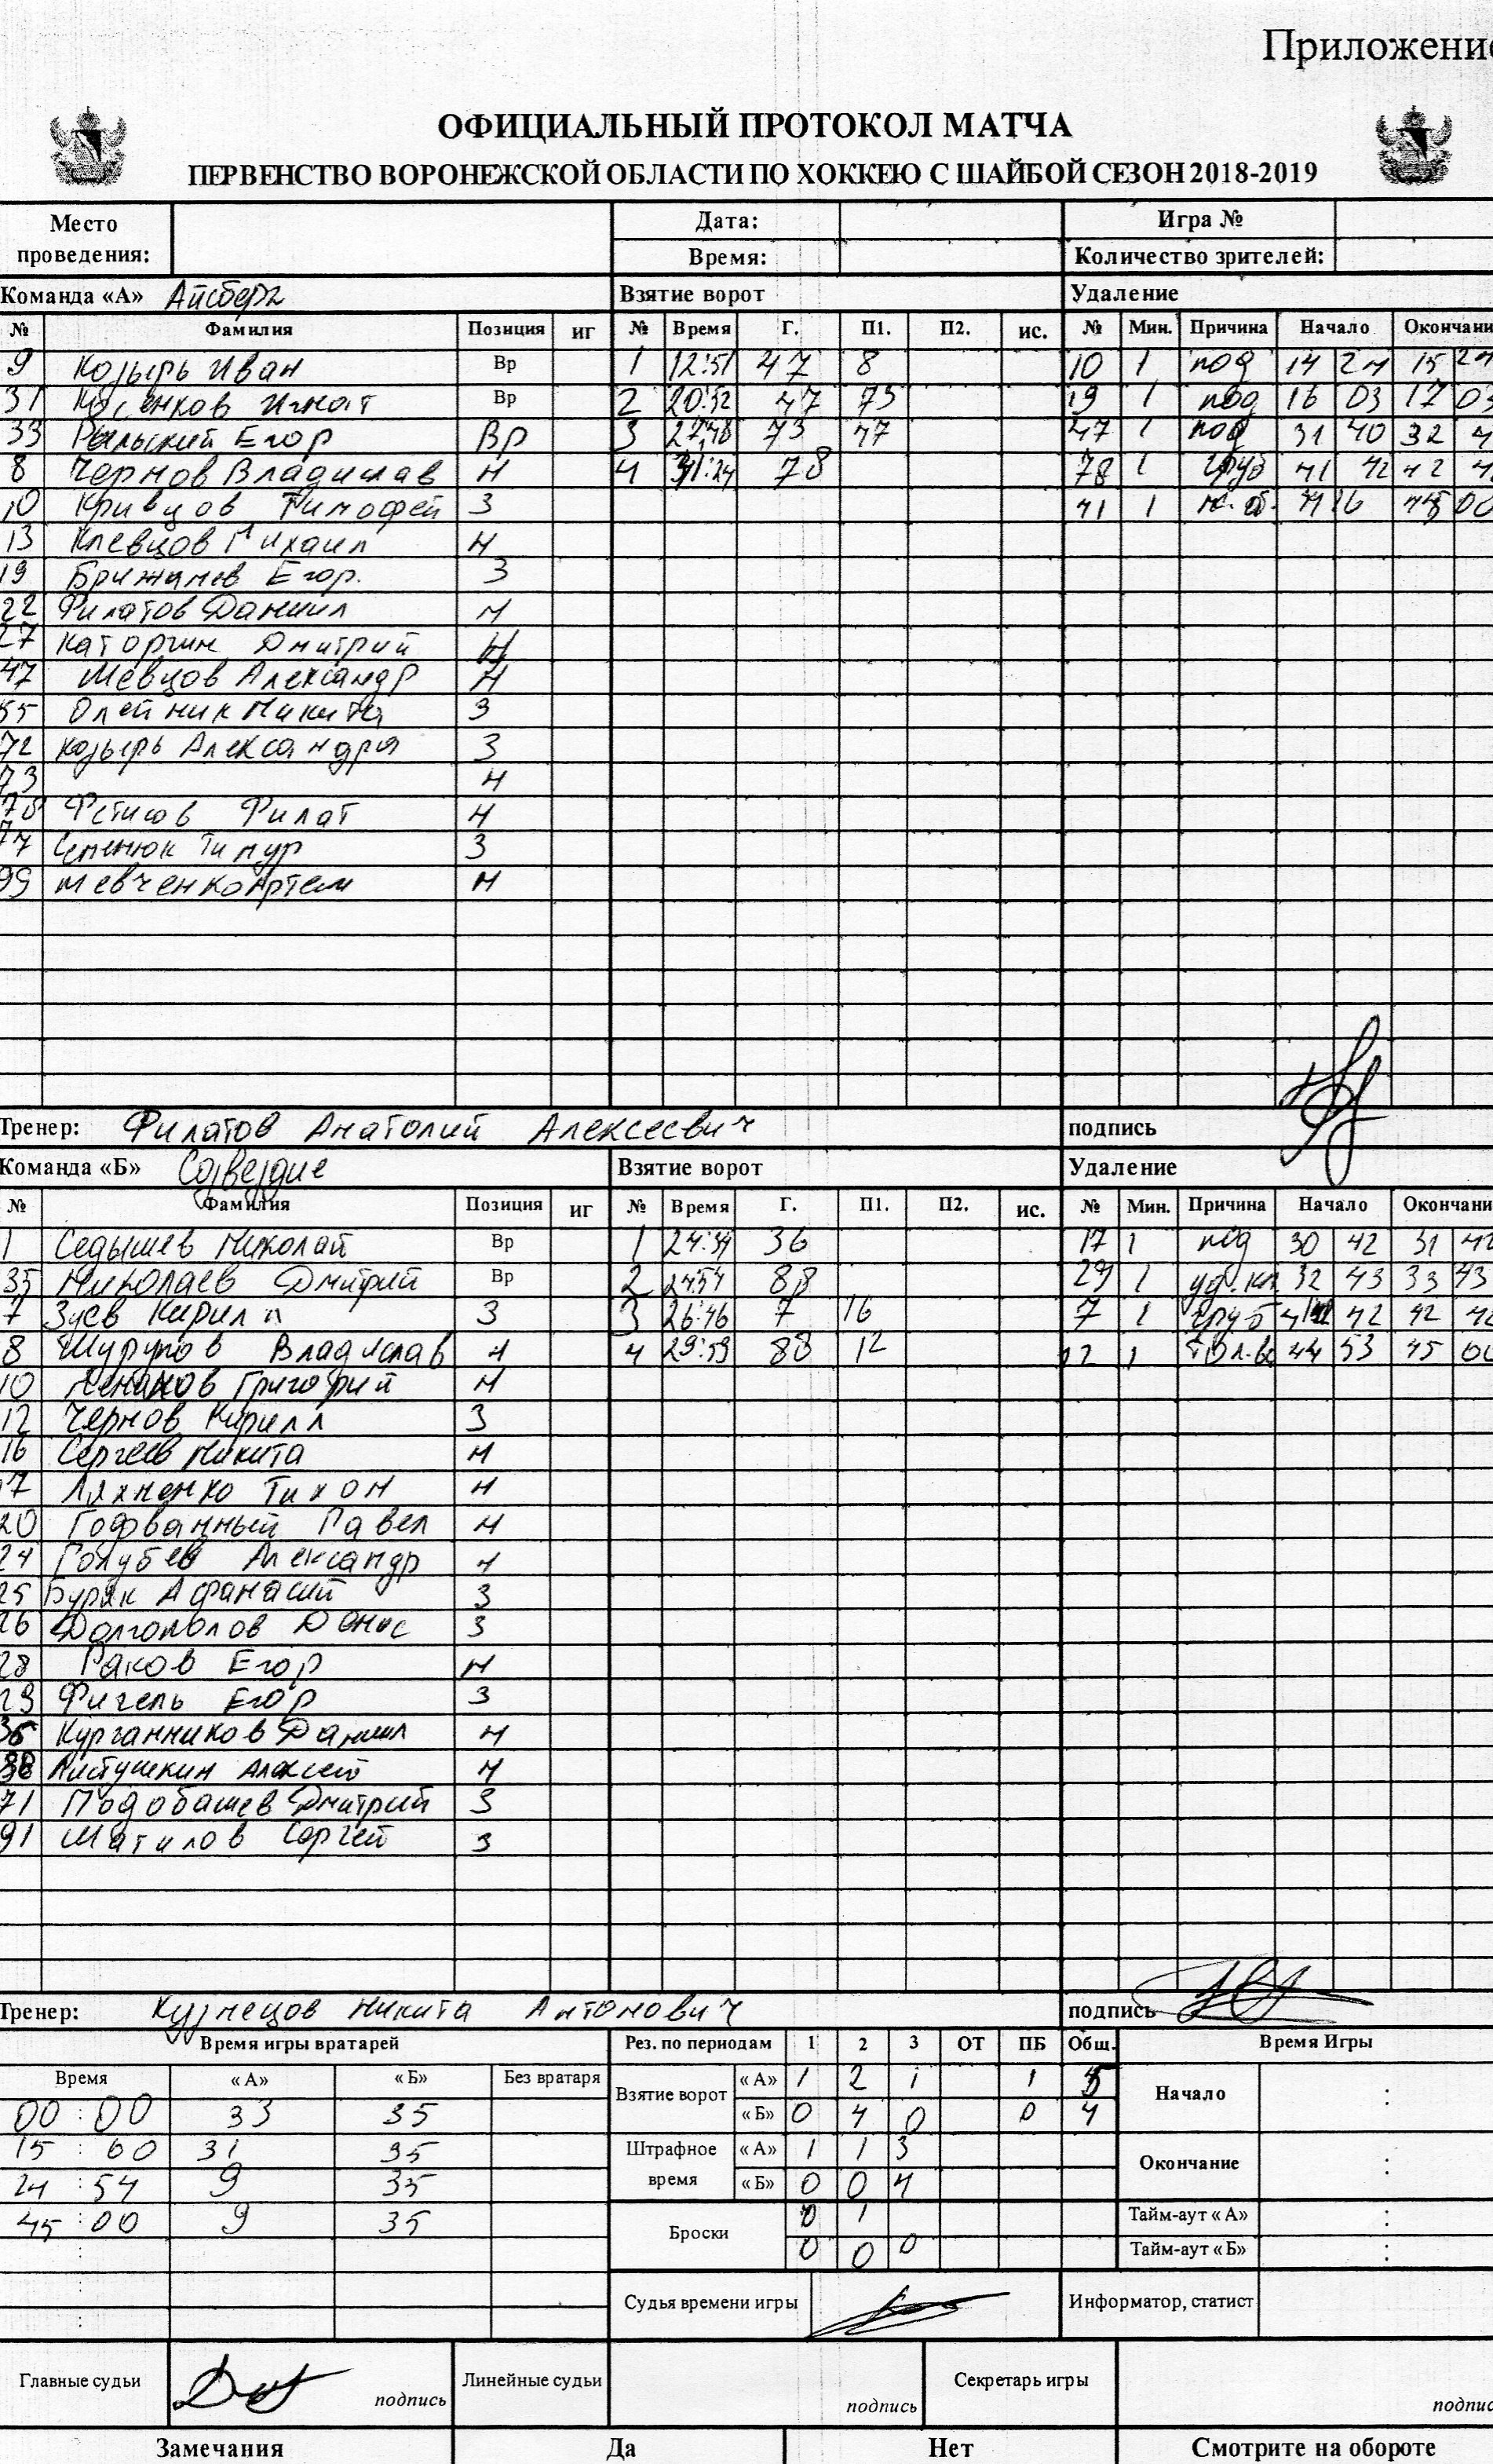 Приложение
ОФИЦИАЛЬНЫЙ ПРОТОКОЛ МАТЧА
ПЕРВЕНСТВО ВОРОНЕЖСКОЙ ОБЛАСТИ ПО ХОККЕЮ С ШАЙБОЙ СЕЗОН 2018-2019
Место проведения: Дата: Игра №
Время: Количество зрителей:
Команда «А» Айсберг Взятие ворот Удаление
№ Фамилия Позиция иг № Время Г. П1. П2. ис. № Мин. Причина Начало Окончани
9 Козырь Иван Вр 1 12:51 47 8 10 1 под 14 24 15 24
31 Косенков Игнат Вр 2 20:52 47 73 19 1 под 16 03 17 03
33 Рыльский Егор Вр 3 73 77 47 1 под 31 40 32
8 Чернов Владислав Н 4 78 78 1 груб 41 42 42
10 Кривцов Тимофей З 1
13 Клевцов Михаил Н
19 Егор. З
22 Филатов Даниил Н
27 Каторгин Дмитрий Н
47 Шевцов Александр Н
55 Олейник Никита З
72 Козырь Александра З
73 Н
78 Фетисов Филат Н
77 Семенюк Тимур З
99 Шевченко Артем Н
Тренер: Филатов Анатолий Алексеевич подпись
Команда «Б» Созвездие Взятие ворот Удаление
№ Фамилия Позиция иг № Время Г. П1. П2. ис. № Мин. Причина Начало Окончани
1 Седышев Николай Вр 1 36 17 1 под 30 42 31 42
35 Николаев Дмитрий Вр 2 24:54 88 29 1 уд.кл. 32 43 33 43
7 Зуев Кирилл З 3 26:46 7 16 7 1 груб 42 42 42
8 Шурупов Владислав Н 4 29:59 88 12 12 1 44 53 45 00
10 Григорий Н
12 Чернов Кирилл З
16 Сергеев Никита Н
17 Ляхненко Тихон Н
20 Павел Н
24 Голубев Александр Н
25 Буряк Афанасий З
26 Долгополов Денис З
28 Раков Егор Н
29 Фигель Егор З
36 Курганников Даниил Н
88 Алексей Н
71 Подобашев Дмитрий З
91 Шатилов Сергей З
Тренер: Кузнецов Никита Антонович подпись
Время игры вратарей Рез. по периодам 1 2 3 ОТ ПБ Общ. Время Игры
Время «А» «Б» Без вратаря Взятие ворот «А» 1 2 1 1 5 Начало :
00 : 00 33 35 «Б» 0 4 0 0 4
15 : 00 31 35 Штрафное время «А» 1 1 3 Окончание :
24 : 54 9 35 «Б» 0 0 4
45 : 00 9 35 Броски 0 1 Тайм-аут «А» :
: 0 0 0 Тайм-аут «Б» :
: Судья времени игры Информатор, статист
:
Главные судьи подпись Линейные судьи подпись Секретарь игры подпис
Замечания Да Нет Смотрите на обороте